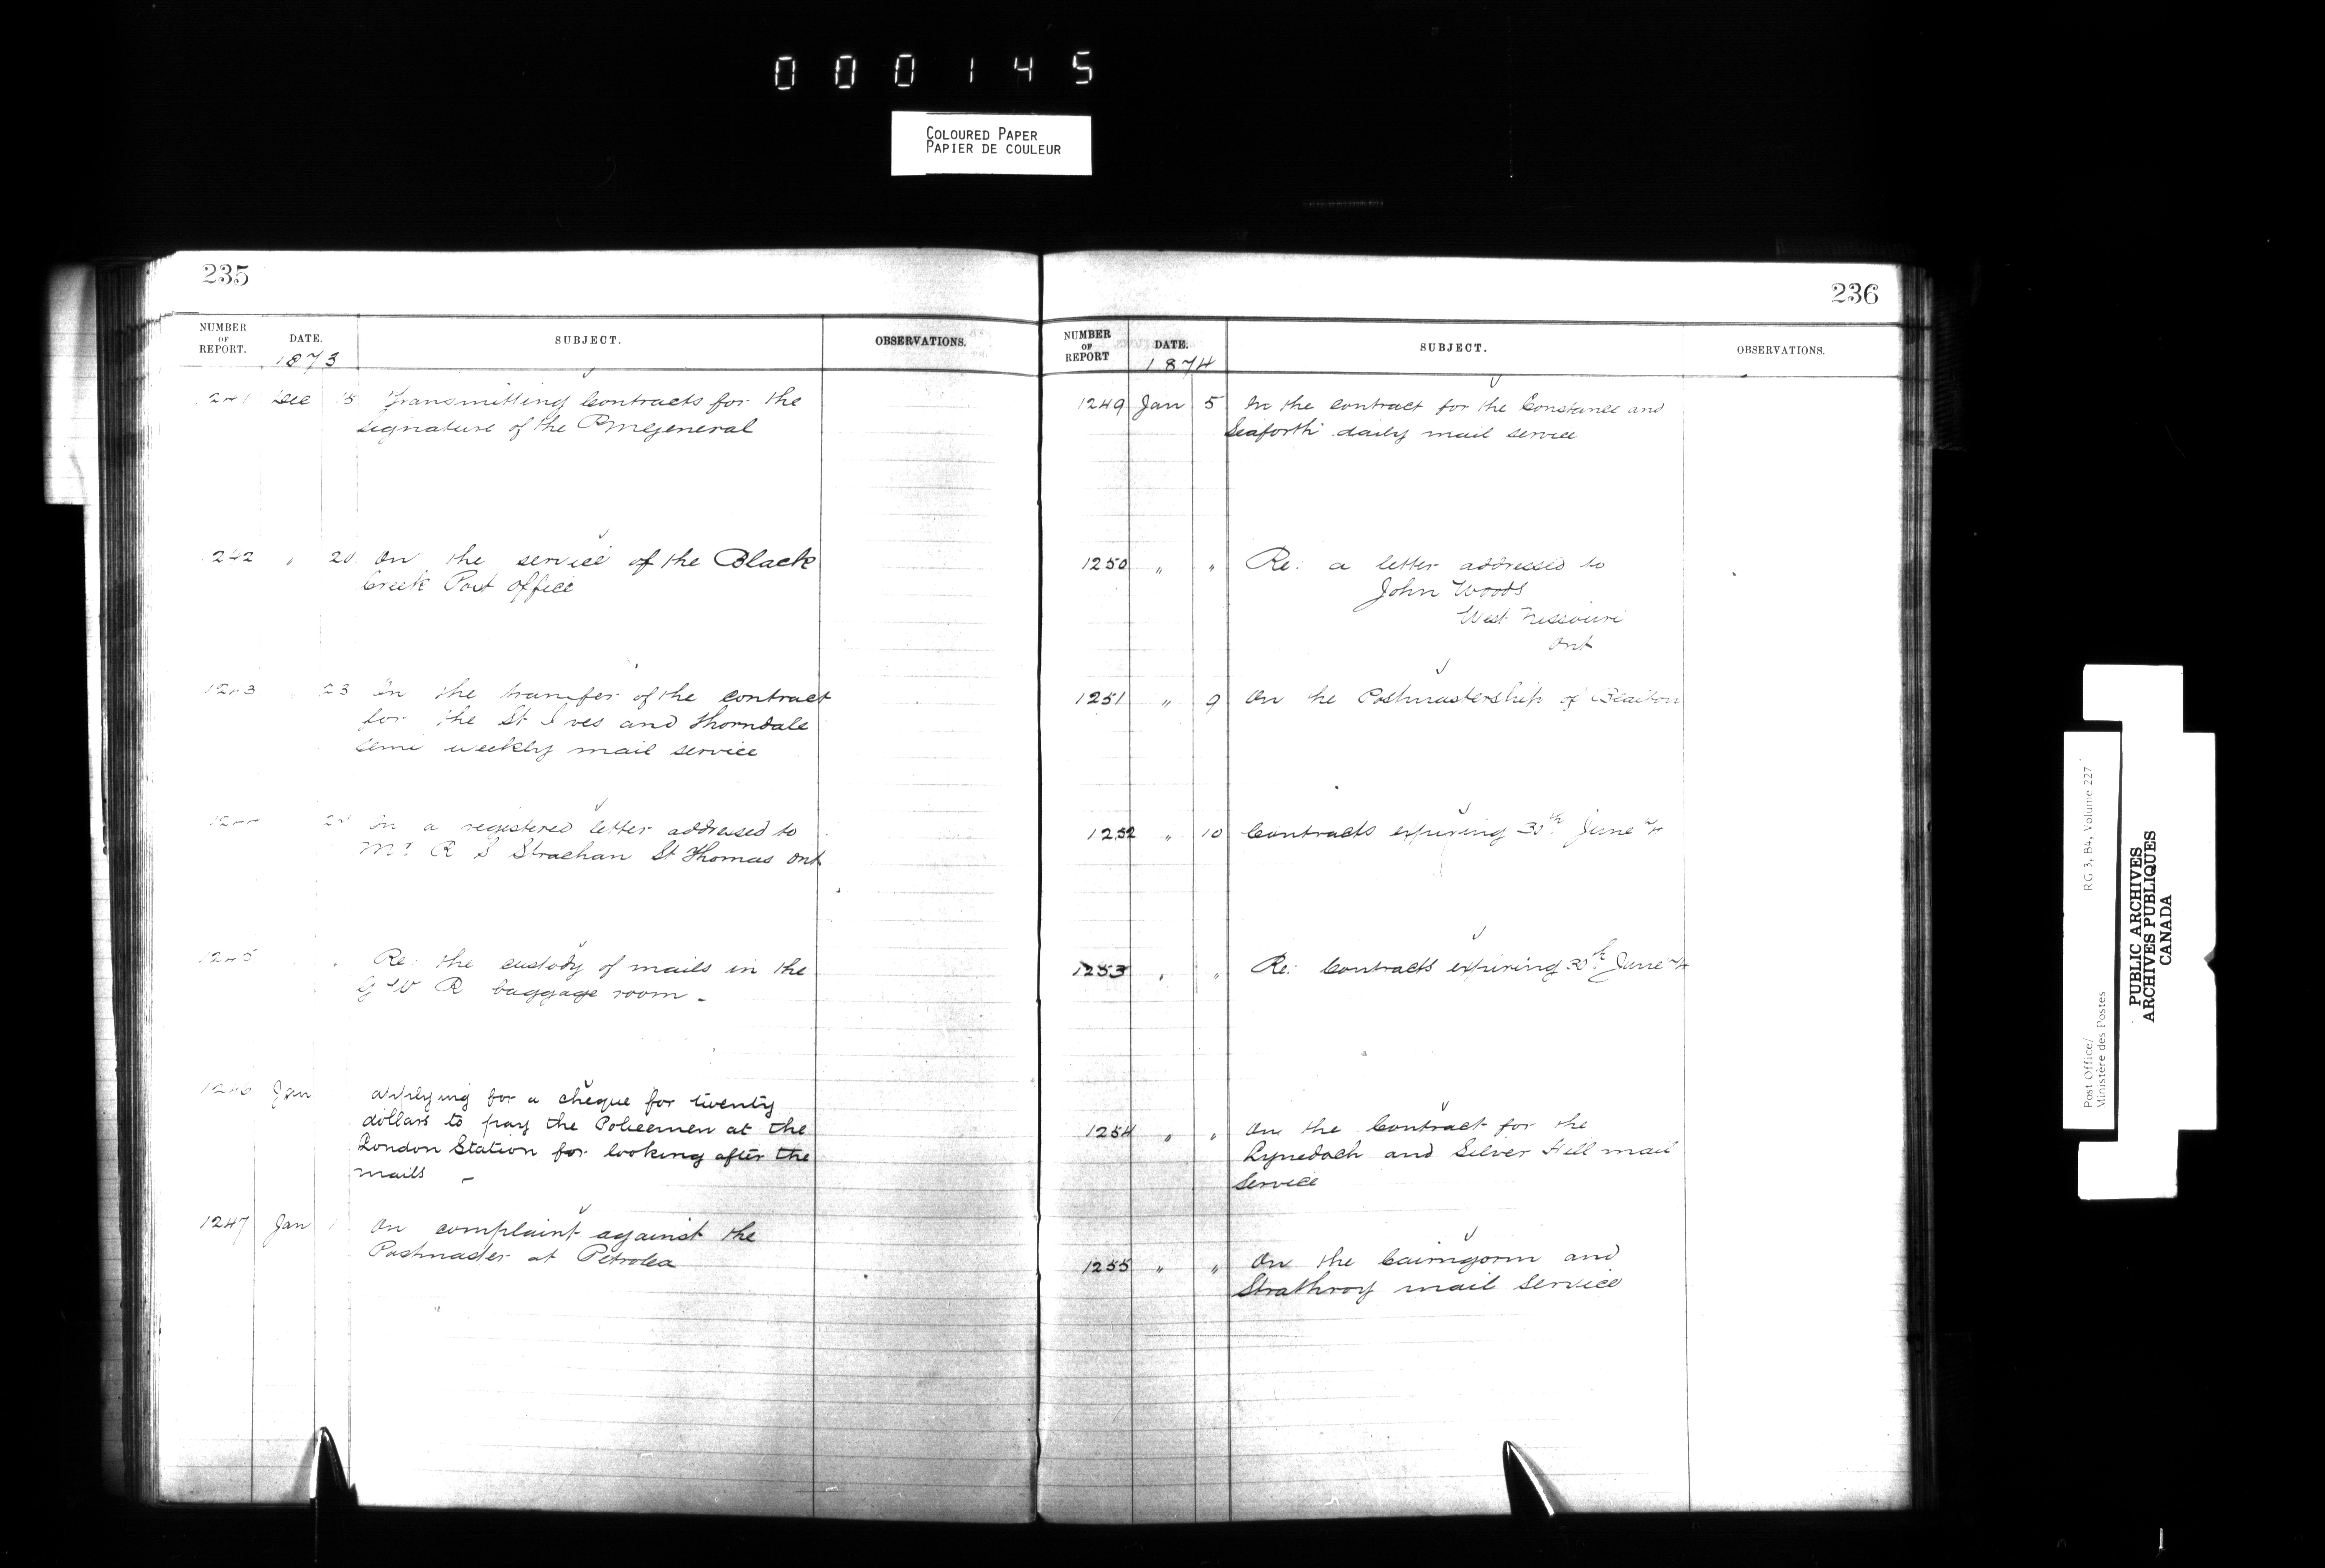 000145
COLOURED PAPER
PAPIER DE COULEUR
235
NUMBER OF REPORT. DATE. SUBJECT. OBSERVATIONS.
1873
241 Dec 15 Transmitting Contracts for the
signature of the PmGeneral
242 " 20 On the service of the Black
Creek Post Office
1243 23 On the transfer of the contract
for the St Ives and Thorndale
semi weekly mail service
On a registered letter addressed to
Mr R S Strachan St Thomas Ont
1245 " Re: the custody of mails in the
G W R baggage room -
1246 Jan Applying for a cheque for twenty
dollars to pay the Policemen at the
London Station for looking after the
mails -
1247 Jan 1 On complaint against the
Postmaster at Petrolea
236
NUMBER OF REPORT DATE. SUBJECT. OBSERVATIONS.
1874
1249 Jan 5 On the contract for the Constance and
Seaforth daily mail service
1250 " " Re: a letter addressed to
John Woods
West Nissouri
Ont
1251 " 9 On the Postmastership of
1252 " 10 Contracts expiring 30th June 74
1253 " " Re: Contracts expiring 30th June 74
1254 " " On the Contract for the
Lynedoch and Silver Hill mail
Service
1255 " " On the Cairngorm and
Strathroy mail service
Post Office/
Ministère des Postes
RG 3, B4, Volume 227
PUBLIC ARCHIVES
ARCHIVES PUBLIQUES
CANADA